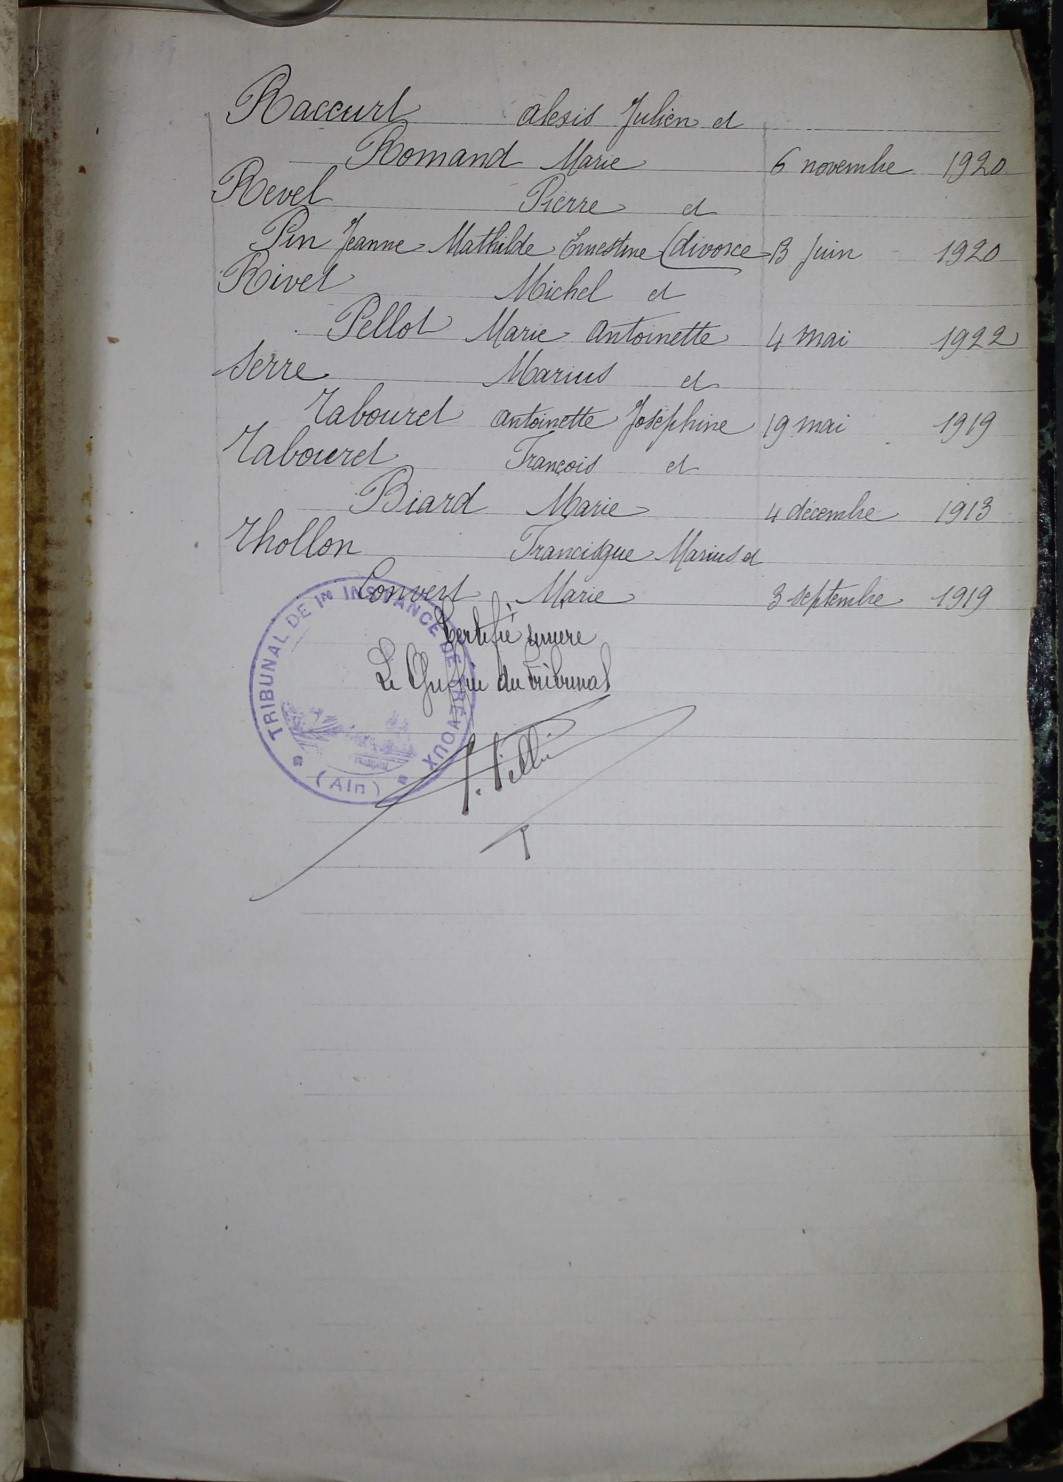 Raccurt Alexis Julien et
Romand Marie 6 novembre 1920
Revel Pierre et
Pin Jeanne Mathilde Ernestine (divorce 3 Juin 1920
Rivet Michel et
Pellot Marie Antoinette 4 mai 1922
Serre Marius et
Tabouret Antoinette Joséphine 19 mai 1919
Tabouret François et
Biard Marie 4 décembre 1913
Thollon Francisque Marius et
Convert Marie 3 septembre 1919
Certifié sincère
Le Greffier du Tribunal
TRIBUNAL DE 1re INSTANCE DE TRÉVOUX
(Ain)